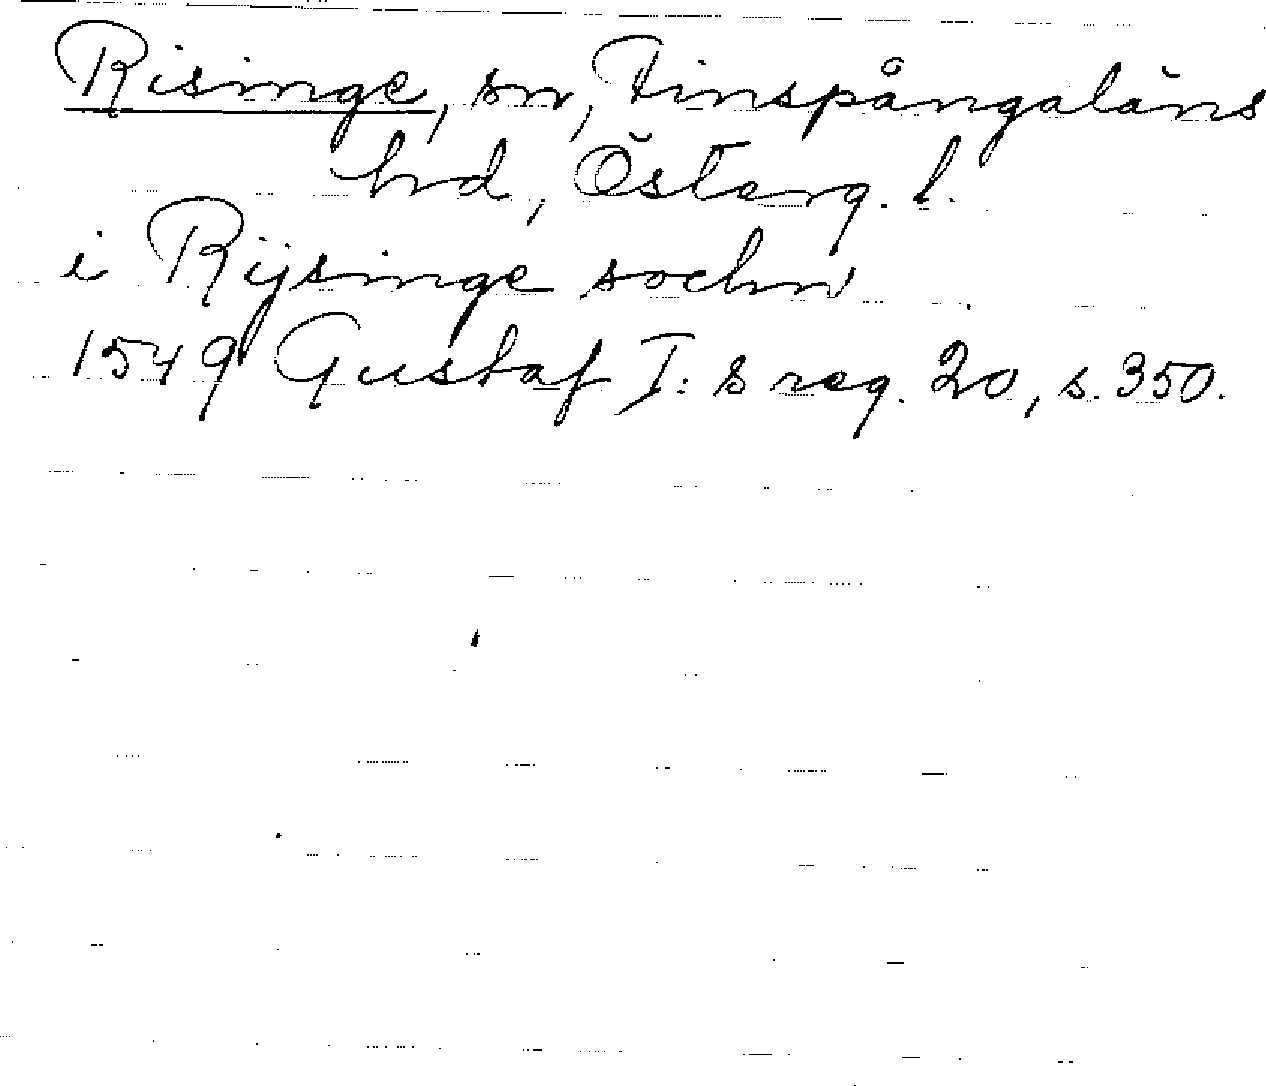 Risinge, sn, Finspångaläns
hd, Österg. l.
i Rijsinge sochn
1549 Gustaf I:s reg. 20, s. 350.